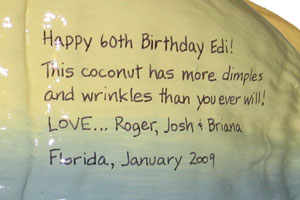 Happy 60th Birthday Edi!
This coconut has more dimples
and wrinkles than you ever will!
LOVE... Roger, Josh & Briana
Florida, January 2009